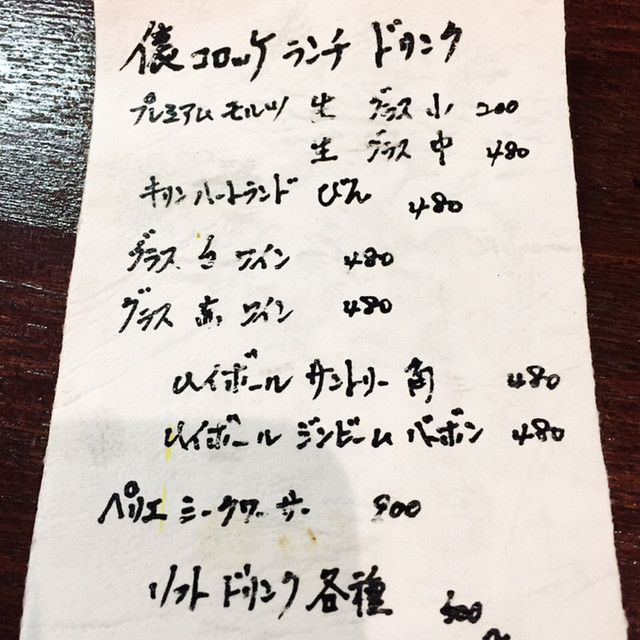 俵コロッケランチ ドリンク
プレミアムモルツ 生 グラス 小 200
生 グラス 中 480
キリンハートランド びん 480
グラス 白ワイン 480
グラス 赤ワイン 480
ハイボール サントリー角 480
ハイボール ジンビーム バーボン 480
ペリエ シークワーサー 500
ソフトドリンク各種 300